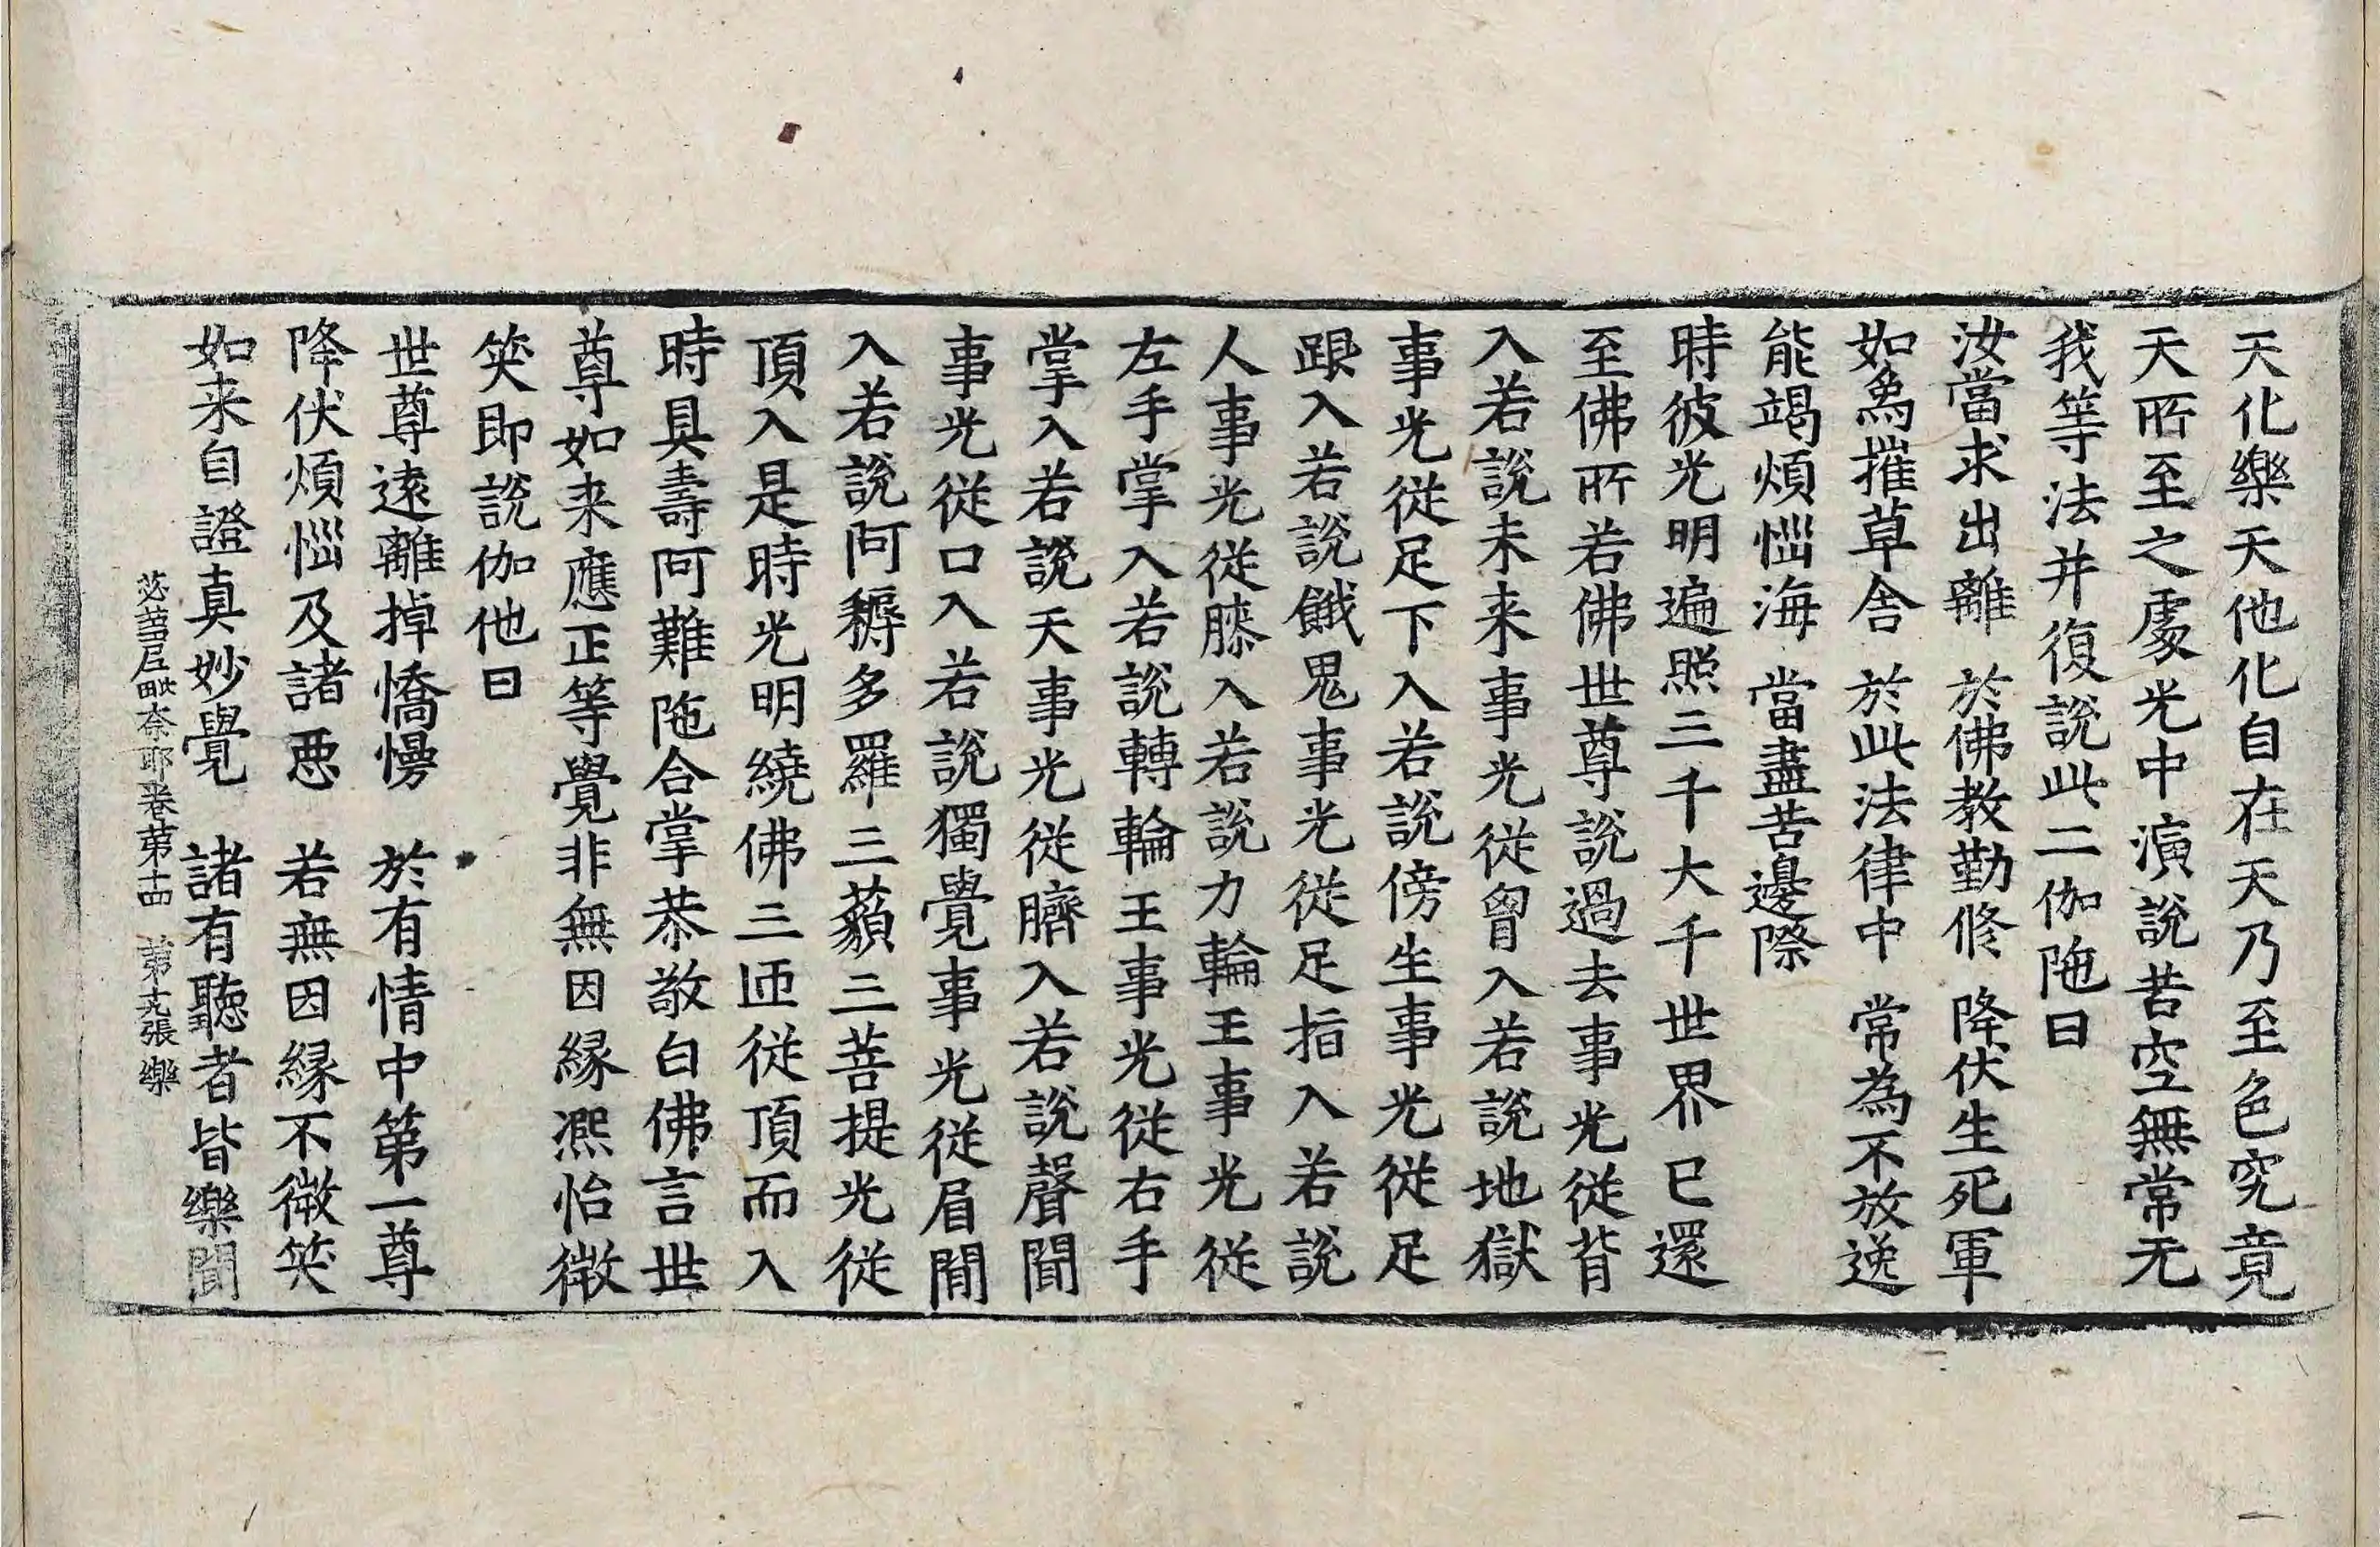 天化樂天他化自在天乃至色究竟
天所至之處光中演說苦空無常无
我等法并復說此二伽陁曰
汝當求出離 於佛教勤修 降伏生死軍
如𤉢摧草舍 於此法律中 常為不放逸
能竭煩惱海 當盡苦邊際
時彼光明遍照三千大千世界已還
至佛所若佛世尊說過去事光從背
入若說未来事光從胷入若說地獄
事光從足下入若說傍生事光從足
跟入若說餓鬼事光從足指入若說
人事光從膝入若說力輪王事光從
左手掌入若說轉輪王事光從右手
掌入若說天事光從臍入若說聲聞
事光從口入若說獨覺事光從眉間
入若說阿耨多羅三藐三菩提光從
頂入是時光明繞佛三匝從頂而入
時具壽阿難陁合掌恭敬白佛言世
尊如来應正等覺非無因緣凞怡微
笑即說伽他曰
世尊遠離掉憍慢 於有情中第一尊
降伏煩惱及諸惡 若無因緣不微笑
如来自證真妙覺 諸有聽者皆樂聞
苾蒭尼毗奈耶卷第十四 第十九張 樂